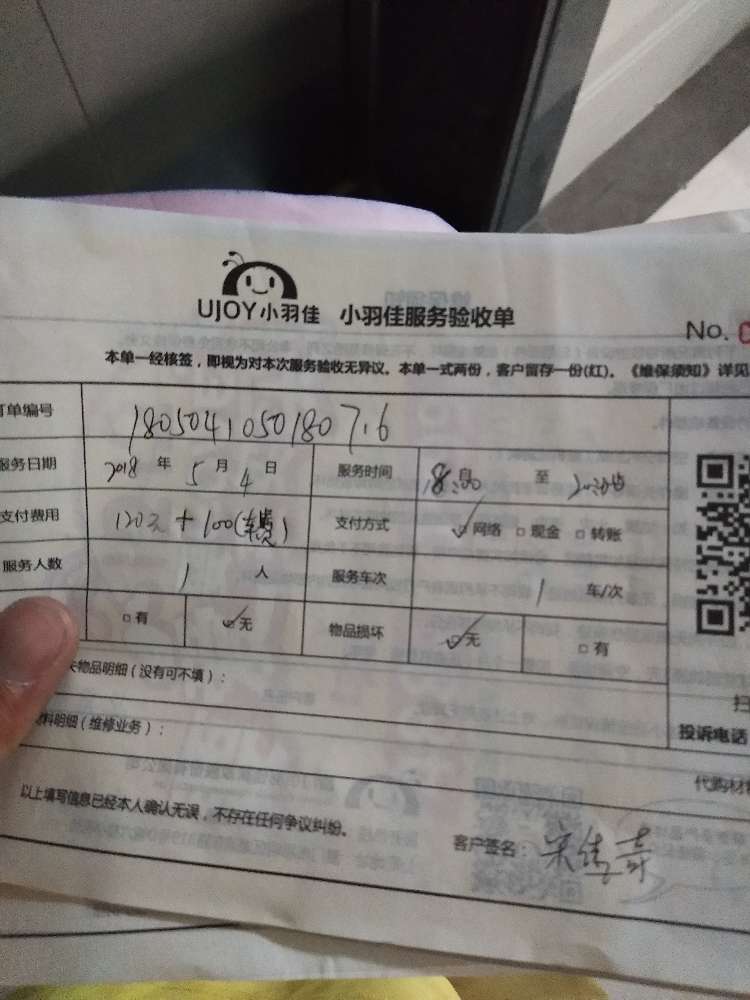 UJOY小羽佳 小羽佳服务验收单
No.
本单一经核签，即视为对本次服务验收无异议。本单一式两份，客户留存一份(红)。《维保须知》详见
订单编号 180504105018076
服务日期 2018 年 5 月 4 日 服务时间 至
支付费用 120元 + 100(车费) 支付方式 网络 现金 转账
服务人数 1 人 服务车次 1 车/次
有 无 物品损坏 无 有
失物品明细（没有可不填）：
料明细（维修业务）：
扫
投诉电话
代购材料
以上填写信息已经本人确认无误，不存在任何争议纠纷。
客户签名：